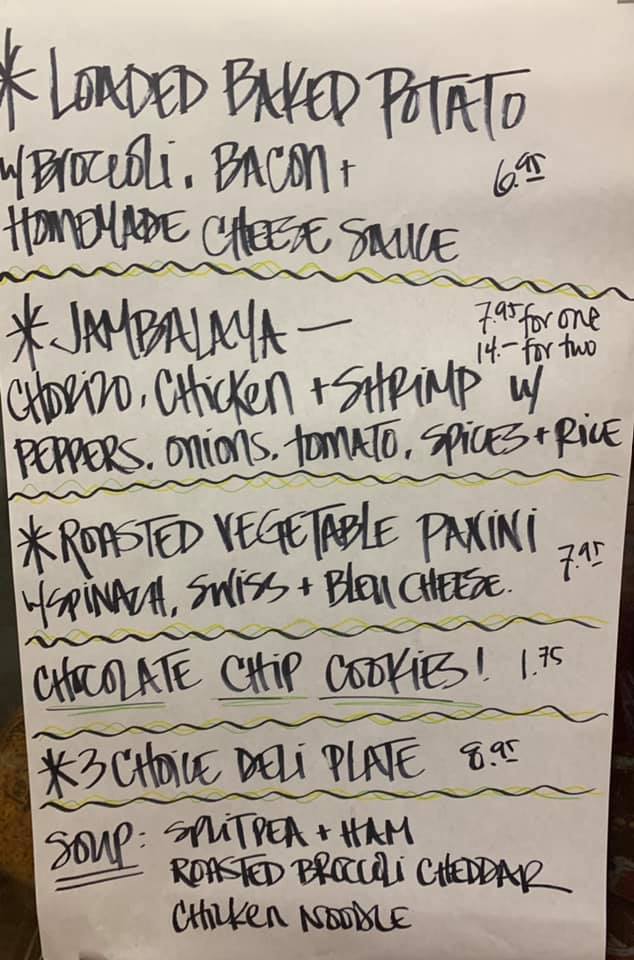 * LOADED BAKED POTATO
w/ BROCCOLI, BACON + 6.95
HOMEMADE CHEESE SAUCE
* JAMBALAYA — 7.95 for one
14.- for two
CHORIZO, CHICKEN + SHRIMP w/
PEPPERS, ONIONS, TOMATO, SPICES + RICE
* ROASTED VEGETABLE PANINI
w/ SPINACH, SWISS + BLEU CHEESE. 7.95
CHOCOLATE CHIP COOKIES! 1.75
* 3 CHOICE DELI PLATE 8.95
SOUP: SPLIT PEA + HAM
ROASTED BROCCOLI CHEDDAR
CHICKEN NOODLE